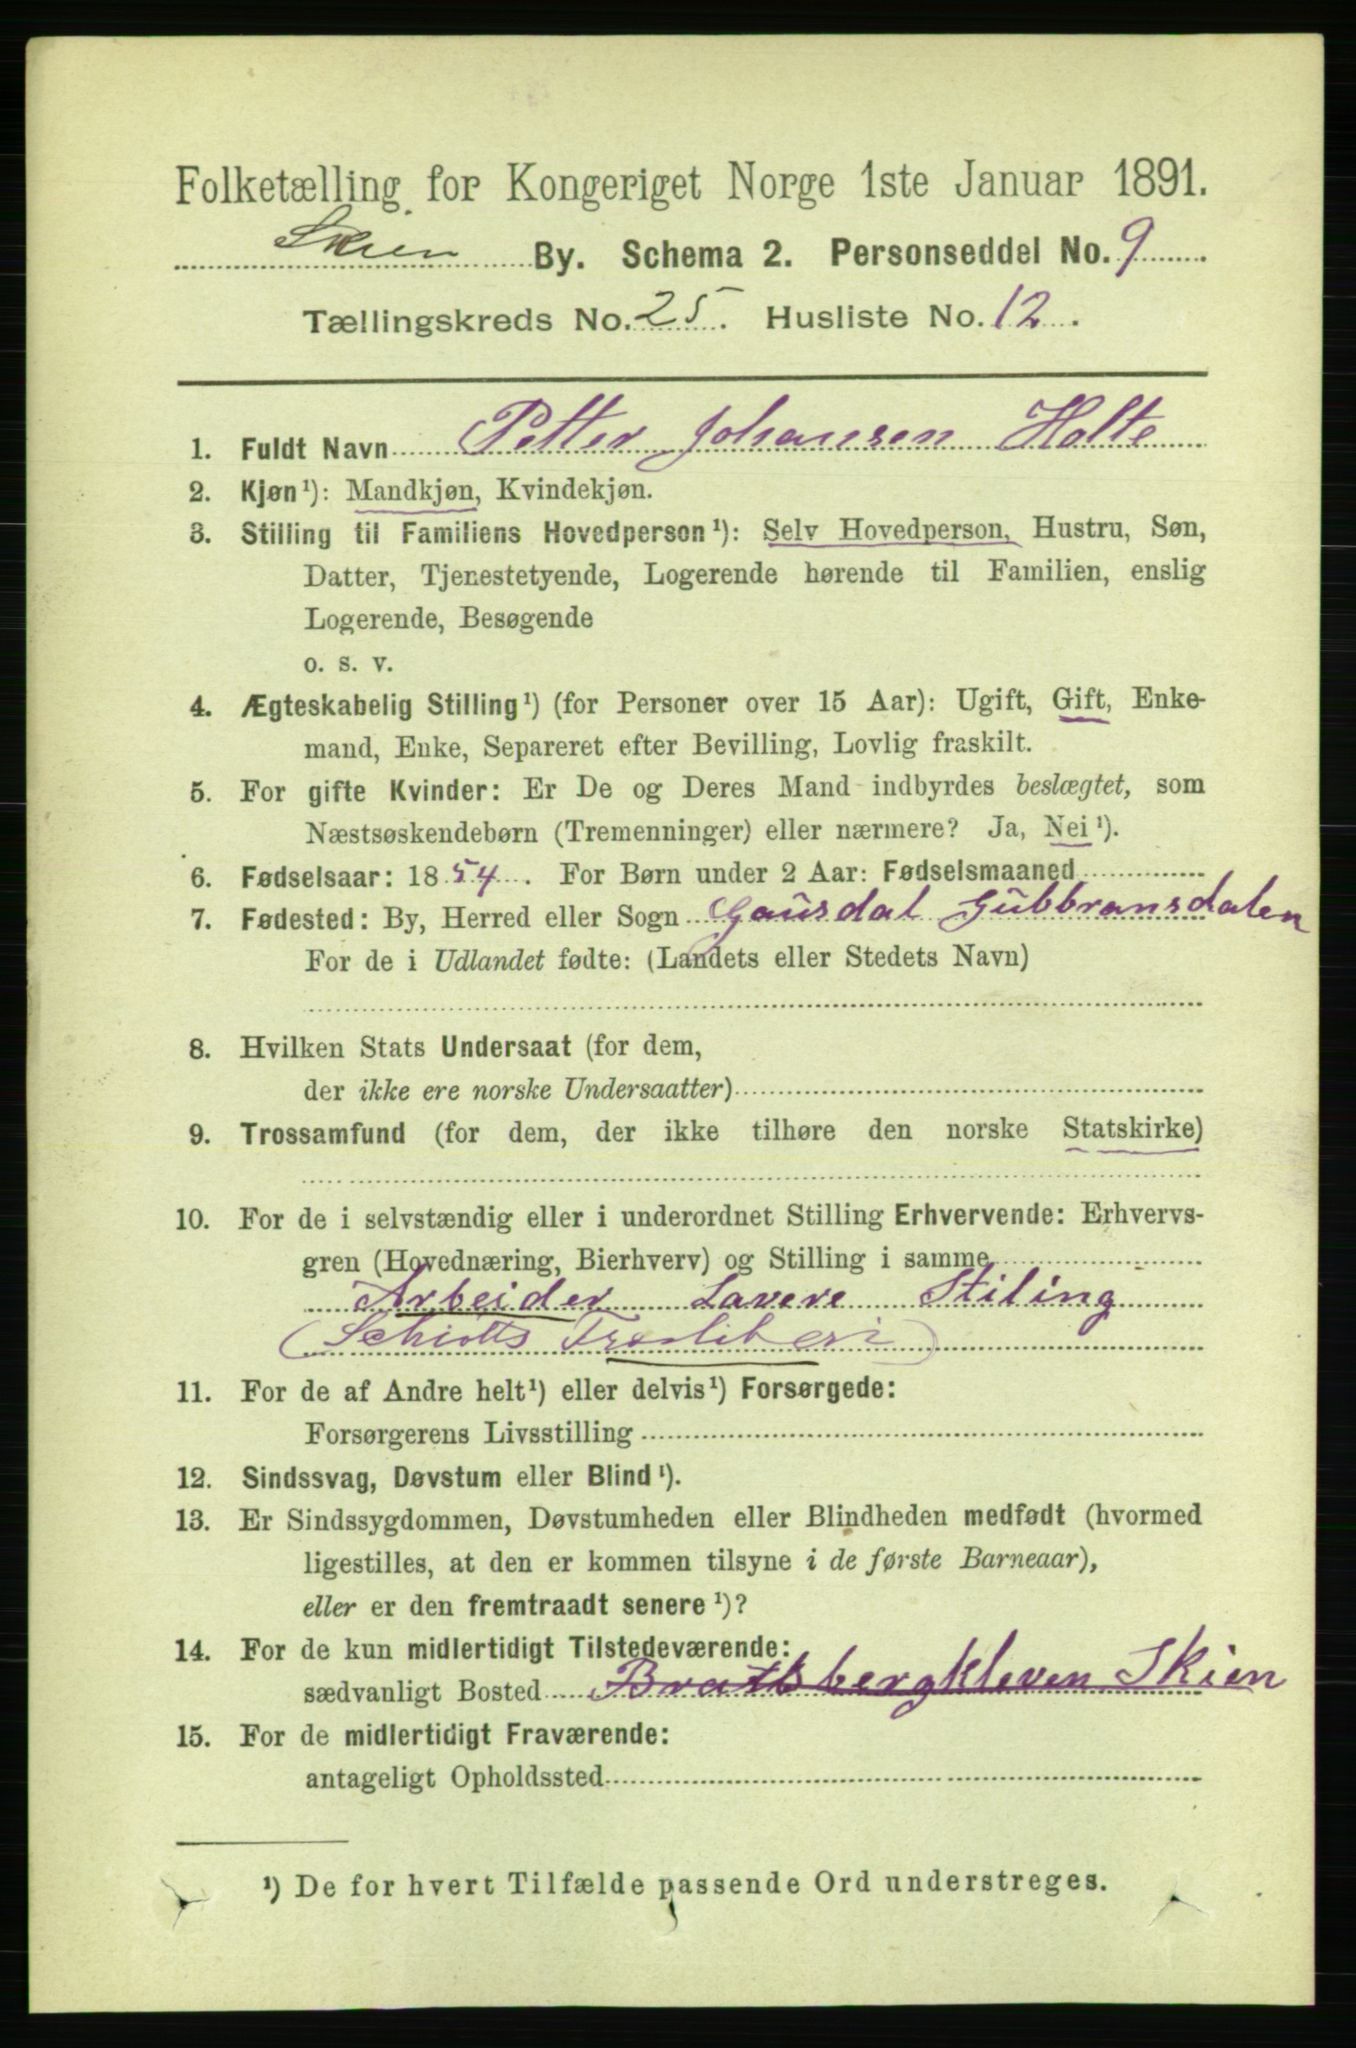 Folketælling for Kongeriget Norge 1ste Januar 1891.
Skien By. Schema 2. Personseddel No. 9
Tællingskreds No. 25. Husliste No. 12.
1. Fuldt Navn Petter Johansen Holte
2. Kjøn¹): Mandkjøn, Kvindekjøn.
3. Stilling til Familiens Hovedperson¹): Selv Hovedperson, Hustru, Søn,
Datter, Tjenestetyende, Logerende hørende til Familien, enslig
Logerende, Besøgende
o. s. v.
4. Ægteskabelig Stilling¹) (for Personer over 15 Aar): Ugift, Gift, Enke-
mand, Enke, Separeret efter Bevilling, Lovlig fraskilt.
5. For gifte Kvinder: Er De og Deres Mand indbyrdes beslægtet, som
Næstsøskendebørn (Tremenninger) eller nærmere? Ja, Nei¹).
6. Fødselsaar: 1854. For Børn under 2 Aar: Fødselsmaaned
7. Fødested: By, Herred eller Sogn Gausdal Gubbransdalen
For de i Udlandet fødte: (Landets eller Stedets Navn)
8. Hvilken Stats Undersaat (for dem,
der ikke ere norske Undersaatter)
9. Trossamfund (for dem, der ikke tilhøre den norske Statskirke)
10. For de i selvstændig eller i underordnet Stilling Erhvervende: Erhvervs-
gren (Hovednæring, Bierhverv) og Stilling i samme
Arbeider Lavere Stiling
(Schiøtts Træsliberi)
11. For de af Andre helt¹) eller delvis¹) Forsørgede:
Forsørgerens Livsstilling
12. Sindssvag, Døvstum eller Blind¹).
13. Er Sindssygdommen, Døvstumheden eller Blindheden medfødt (hvormed
ligestilles, at den er kommen tilsyne i de første Barneaar),
eller er den fremtraadt senere¹)?
14. For de kun midlertidigt Tilstedeværende:
sædvanligt Bosted Bratsbergkleven Skien
15. For de midlertidigt Fraværende:
antageligt Opholdssted
¹) De for hvert Tilfælde passende Ord understreges.